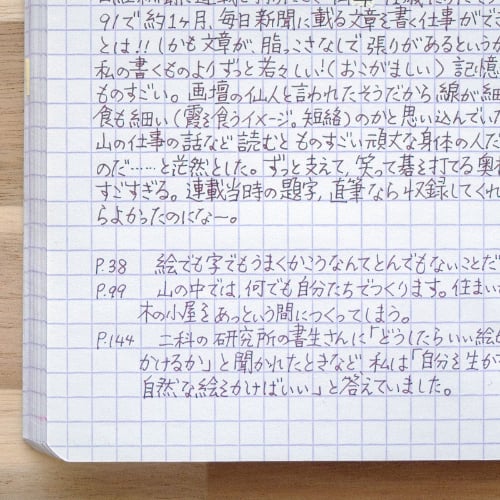 91で約1ヶ月、毎日新聞に載る文章を書く仕事がで
とは!!しかも文章が、脂っこさなしで張りがあるというか
私の書くものよりずっと若々しい!(おこがましい)記憶
ものすごい。画壇の仙人と言われたそうだから線が細
食も細い(霞を食うイメージ。短絡)のかと思い込んでいた
山の仕事の話など読むとものすごい頑丈な身体の人だ
のだ……と茫然とした。ずっと支えて、笑って碁を打てる奥
すごすぎる。連載当時の題字、直筆なら収録してくれ
らよかったのになー。
P.38 絵でも字でもうまくかこうなんてとんでもないことだ
P.99 山の中では、何でも自分たちでつくります。住まい
木の小屋をあっという間につくってしまう。
P.144 二科の研究所の書生さんに「どうしたらいい絵
かけるか」と聞かれたときなど、私は「自分を生か
自然な絵をかけばいい」と答えていました。